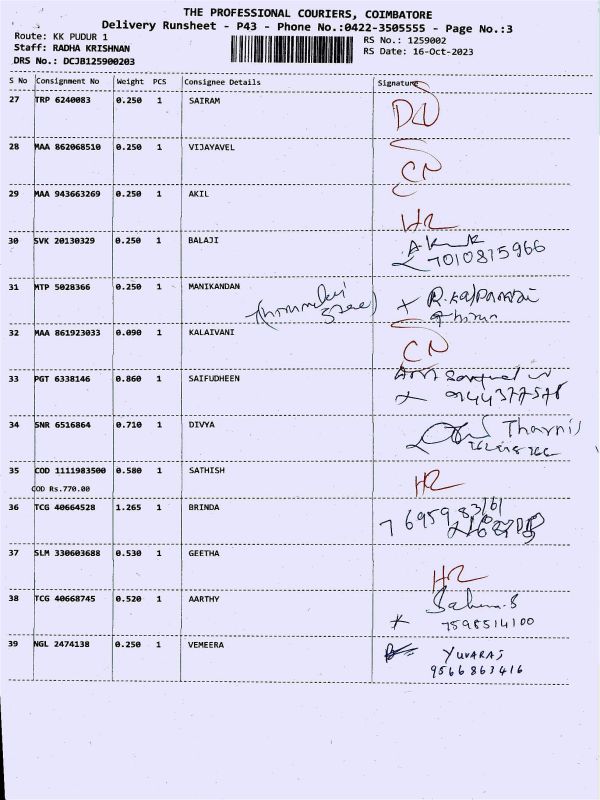 THE PROFESSIONAL COURIERS, COIMBATORE
Delivery Runsheet - P43 - Phone No.:0422-3505555 - Page No.:3
Route: KK PUDUR 1
RS No.: 1259002
Staff: RADHA KRISHNAN
RS Date: 16-Oct-2023
DRS No.: DCJB125900203
S No Consignment No Weight PCS Consignee Details Signature
27 TRP 6240083 0.250 1 SAIRAM
28 MAA 862068510 0.250 1 VIJAYAVEL CN
29 MAA 943663269 0.250 1 AKIL HR
30 SVK 20130329 0.250 1 BALAJI
7010815966
31 MTP 5028366 0.250 1 MANIKANDAN
32 MAA 861923033 0.090 1 KALAIVANI CN
33 PGT 6338146 0.860 1 SAIFUDHEEN
9144377578
34 SNR 6516864 0.710 1 DIVYA
35 COD 1111983500 0.580 1 SATHISH HR
COD Rs.770.00
36 TCG 40664528 1.265 1 BRINDA
37 SLM 330603688 0.530 1 GEETHA HR
38 TCG 40668745 0.520 1 AARTHY
7598514100
39 NGL 2474138 0.250 1 VEMEERA YUVARAJ
9566863416